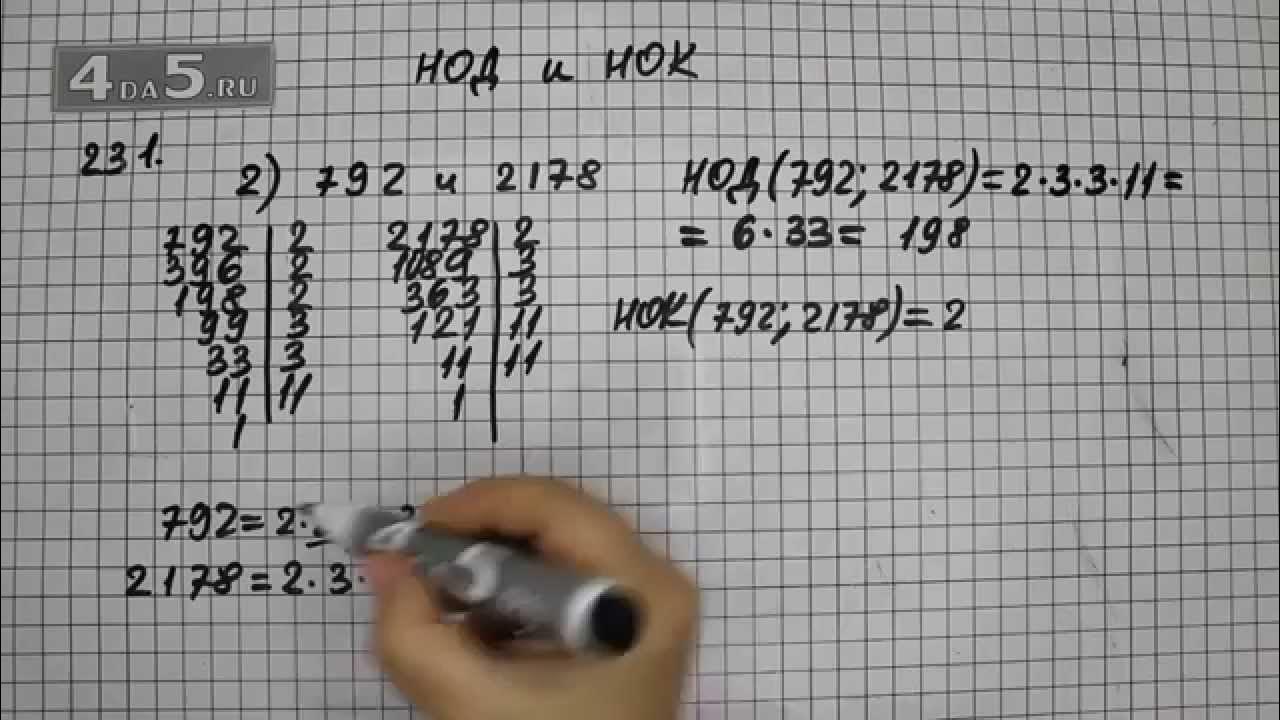 4DA5.RU
НОД и НОК
231.
2) 792 и 2178
792 | 2
396 | 2
198 | 2
99 | 3
33 | 3
11 | 11
1
2178 | 2
1089 | 3
363 | 3
121 | 11
11 | 11
1
НОД(792; 2178)=2·3·3·11=
= 6·33= 198
НОК(792; 2178)=2
792=2·
2178=2·3·